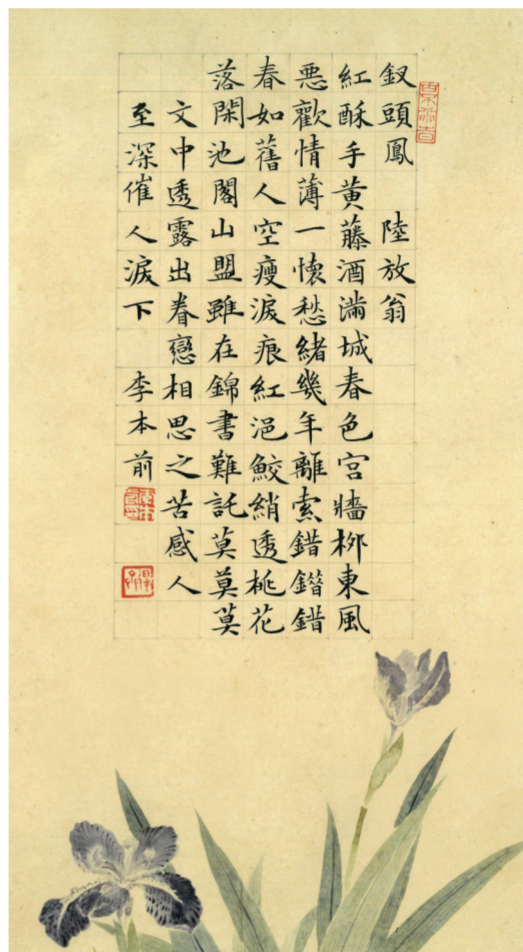 釵頭鳳 陸放翁
紅酥手黃藤酒滿城春色宮牆柳東風
悪歡情薄一懷愁緒幾年離索錯錯錯
春如舊人空瘦淚痕紅浥鮫綃透桃花
落閑池閣山盟雖在錦書難託莫莫莫
文中透露出眷戀相思之苦感人
至深催人淚下 李本前